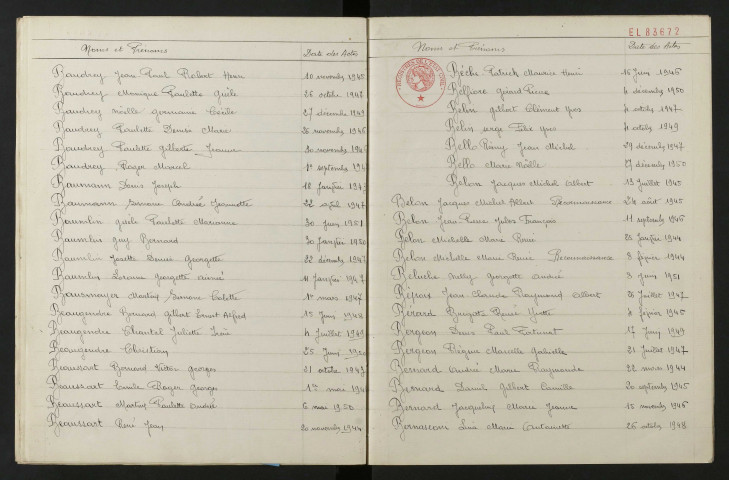 Noms et Prénoms Date des Actes
Baudrey Jean Paul Robert Henri 10 novembre 1945
Baudrey Monique Paulette Gisèle 26 octobre 1942
Baudrey Noëlle Germaine Cécile 27 décembre 1949
Baudrey Paulette Denise Marie 26 novembre 1946
Baudrey Paulette Gilberte Jeanne 30 novembre 1946
Baudrey Roger Marcel 1er septembre
Baumann Denis Joseph 18 Janvier
Baumann Simone Andrée Jeannette 22 avril 1947
Baumlin Gisèle Paulette Marianne 30 Juin 1951
Baumlin Guy Bernard 30 Janvier 1950
Baumlin Josette Denise Georgette 22 décembre 1947
Baumlin Georgette Aimée 11 Janvier 1947
Bausmayer Martine Simone Colette 1er mars 1947
Beaugendre Bernard Gilbert Ernest Alfred 15 Juin 1948
Beaugendre Chantal Juliette Irène 4 Juillet 1949
Beaugendre Christian 25 Juin 1950
Beaussart Bernard Victor Georges 31 octobre 1947
Beaussart Emile Roger Georges 1er mai
Beaussart Martine Paulette Andrée 6 mai 1950
Beaussart René Jean 20 novembre 1944
EL 83672
Noms et Prénoms Date des Actes
Bèche Patrick Maurice Henri 15 Juin 1946
Belfiore Gérard Pierre 4 décembre 1950
Belon Gilbert Clément Yves 4 octobre 1947
Belon Serge Yves 4 octobre 1949
Belle Rémy Jean Michel 29 décembre 1947
Belle Marie Noëlle 27 décembre 1950
Belon Jacques Michel Albert 13 Juillet 1945
Belon Jacques Michel Albert Reconnaissance 24 août 1945
Belon Jean-Pierre Jules François 11 septembre 1946
Belon Michelle Marie Pierre 28 Janvier 1944
Belon Michelle Marie Pierre Reconnaissance 8 février 1944
Beluche Nelly Georgette Andrée 3 Juin 1951
Jean Claude Raymond Albert 26 Juillet 1947
Bérard Brigitte Renée Yvette 4 février 1946
Bergeon Denis Paul Fortunat 17 Juin 1949
Bergeon Régine Marcelle Gabrielle 21 Juillet 1947
Bernard Andrée Marie Raymonde 22 mars 1944
Bernard Daniel Gilbert Camille 20 septembre 1945
Bernard Jacqueline Marie Jeanne 12 novembre 1946
Bernasconi Marie Antoinette 26 octobre 1948